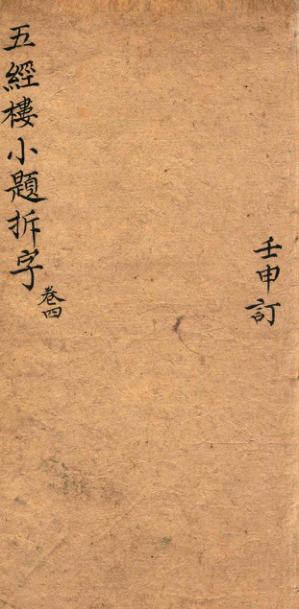 五經樓小題拆字 卷四
壬申訂